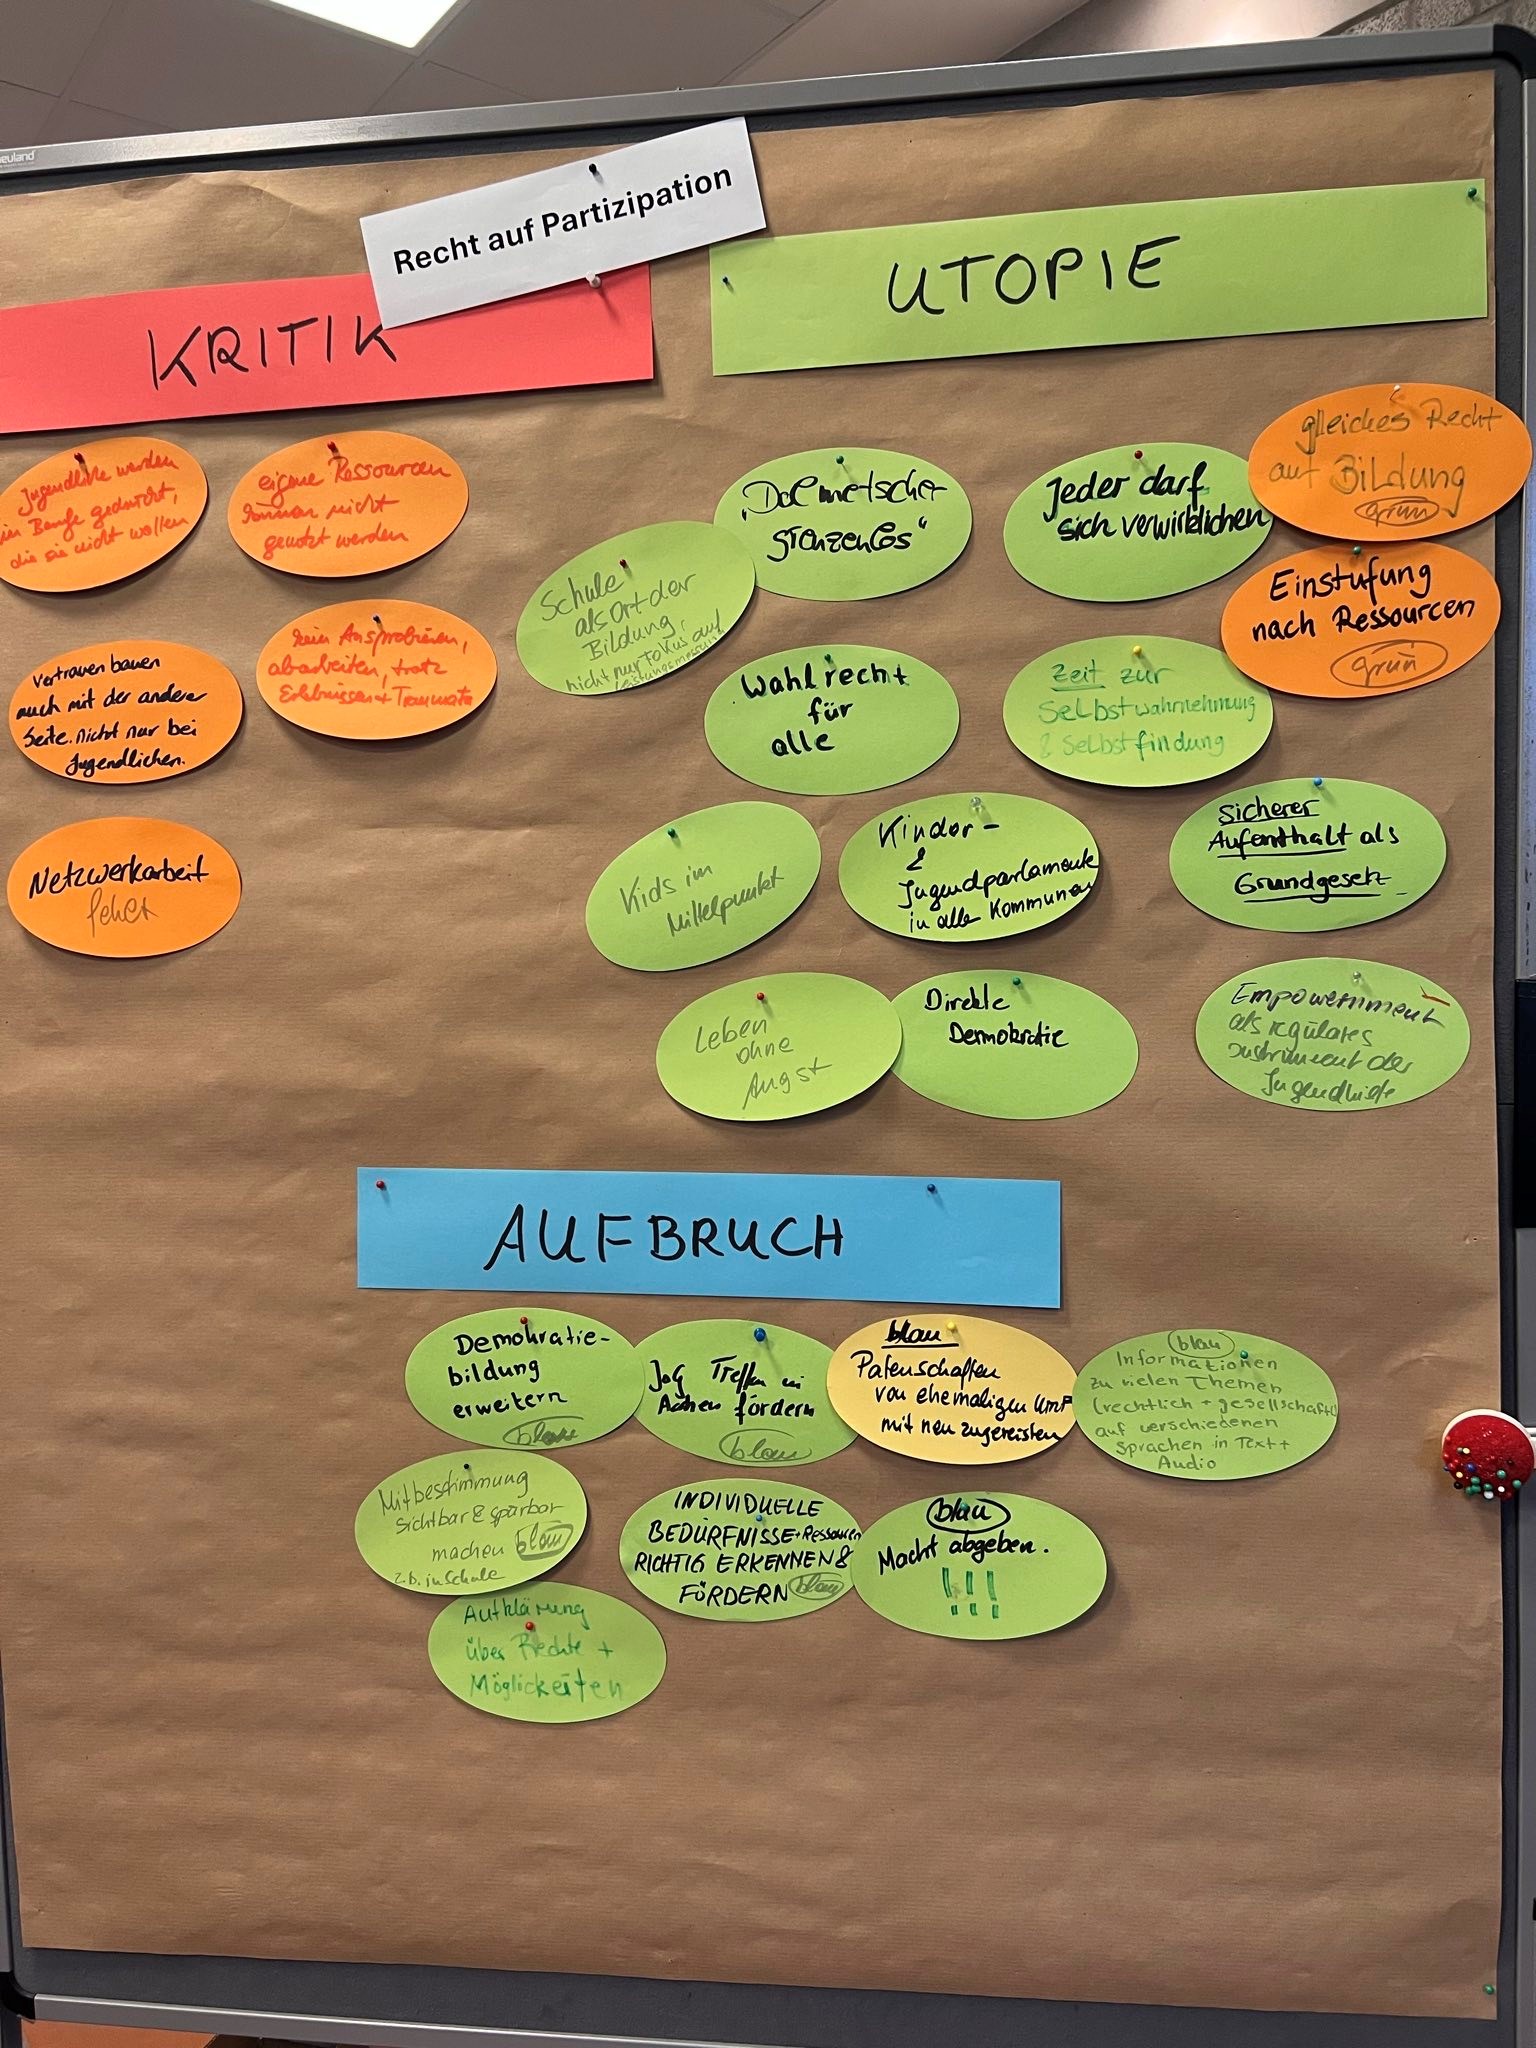 neuland
Recht auf Partizipation
KRITIK
Jugendliche werden
in Berufe gedrückt,
die sie nicht wollen
eigene Ressourcen
können nicht
genutzt werden
Vertrauen bauen
auch mit der anderen
Seite. nicht nur bei
Jugendlichen.
kein Ausprobieren,
abarbeiten, trotz
Erlebnissen + Traumata
Netzwerkarbeit
fehlt
UTOPIE
"Dolmetscher
grenzenlos"
Jeder darf
sich verwirklichen
gleiches Recht
auf Bildung
grün
Schule
als Ort der
Bildung,
nicht nur Fokus auf
Leistungsmessung
Einstufung
nach Ressourcen
grün
Wahlrecht
für
alle
Zeit zur
Selbstwahrnehmung
& Selbstfindung
Kids im
Mittelpunkt
Kinder-
&
Jugendparlamente
in alle Kommunen
Sicherer
Aufenthalt als
Grundgesetz
Leben
ohne
Angst
Direkte
Demokratie
Empowernment
als reguläres
Instrument der
Jugendhilfe
AUFBRUCH
Demokratie-
bildung
erweitern
blau
JoG Treffen in
Aachen fördern
blau
blau
Patenschaften
von ehemaligen UmF
mit neu zugereisten
blau
Informationen
zu vielen Themen
(rechtlich + gesellschaftl.)
auf verschiedenen
Sprachen in Text +
Audio
Mitbestimmung
sichtbar & spürbar
machen blau
z.B. in Schule
INDIVIDUELLE
BEDÜRFNISSE + Ressourcen
RICHTIG ERKENNEN &
FÖRDERN blau
blau
Macht abgeben.
!!!
Aufklärung
über Rechte +
Möglickeiten